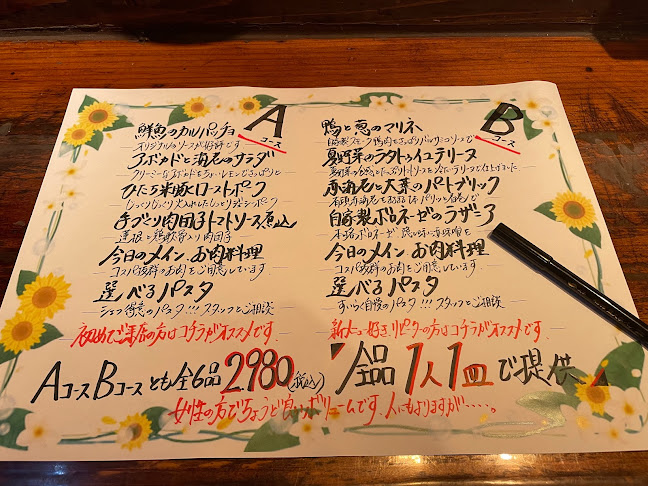 A
コース
鮮魚のカルパッチョ
オリジナルソースが好評です
アボカドと海老のサラダ
ひたち米豚ローストポーク
じっくりじっくり火入れしたしっとりジューシーポーク
手づくり肉団子トマトソース煮込
蓮根と鶏軟骨入り肉団子
今日のメイン お肉料理
コスパ抜群のお肉をご用意しています
選べるパスタ
シェフ得意のパスタ!!! スタッフとご相談
初めてご来店の方はコチラがオススメです。
B
コース
鴨と葱のマリネ
夏野菜のラタトゥイユテリーヌ
赤海老と大葉のパートブリック
自家製ボロネーゼのラザニア
今日のメイン お肉料理
コスパ抜群のお肉をご用意しています
選べるパスタ
スタッフとご相談
新しい好き、リピーターの方はコチラがオススメです。
AコースBコースとも全6品2,980(税込)
全品1人1皿で提供
女性の方でちょうど良いボリュームです。人にもよりますが・・・・・。